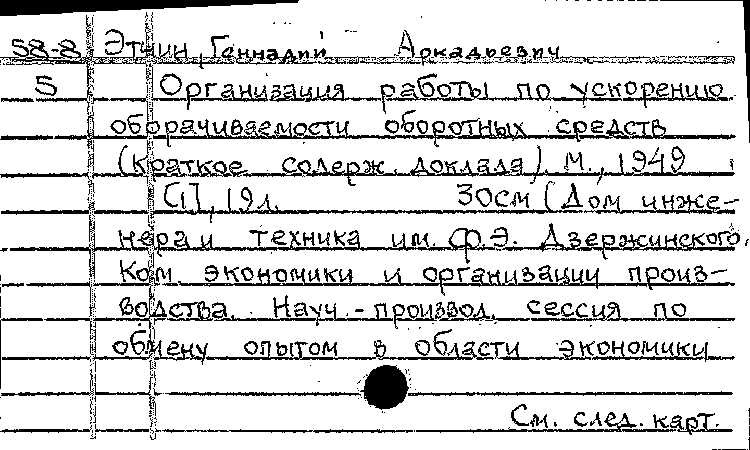 58-8 Этчин, Геннадий Аркадьевич
5 Организация работы по ускорению
оборачиваемости оборотных средств
(краткое содерж. доклада). М., 1949
[1], 19л. 30см (Дом инже-
нера и техника им. Ф.Э. Дзержинского.
Ком. экономики и организации произ-
водства. Науч.-производ. сессия по
обмену опытом в области экономики
См. след. карт.